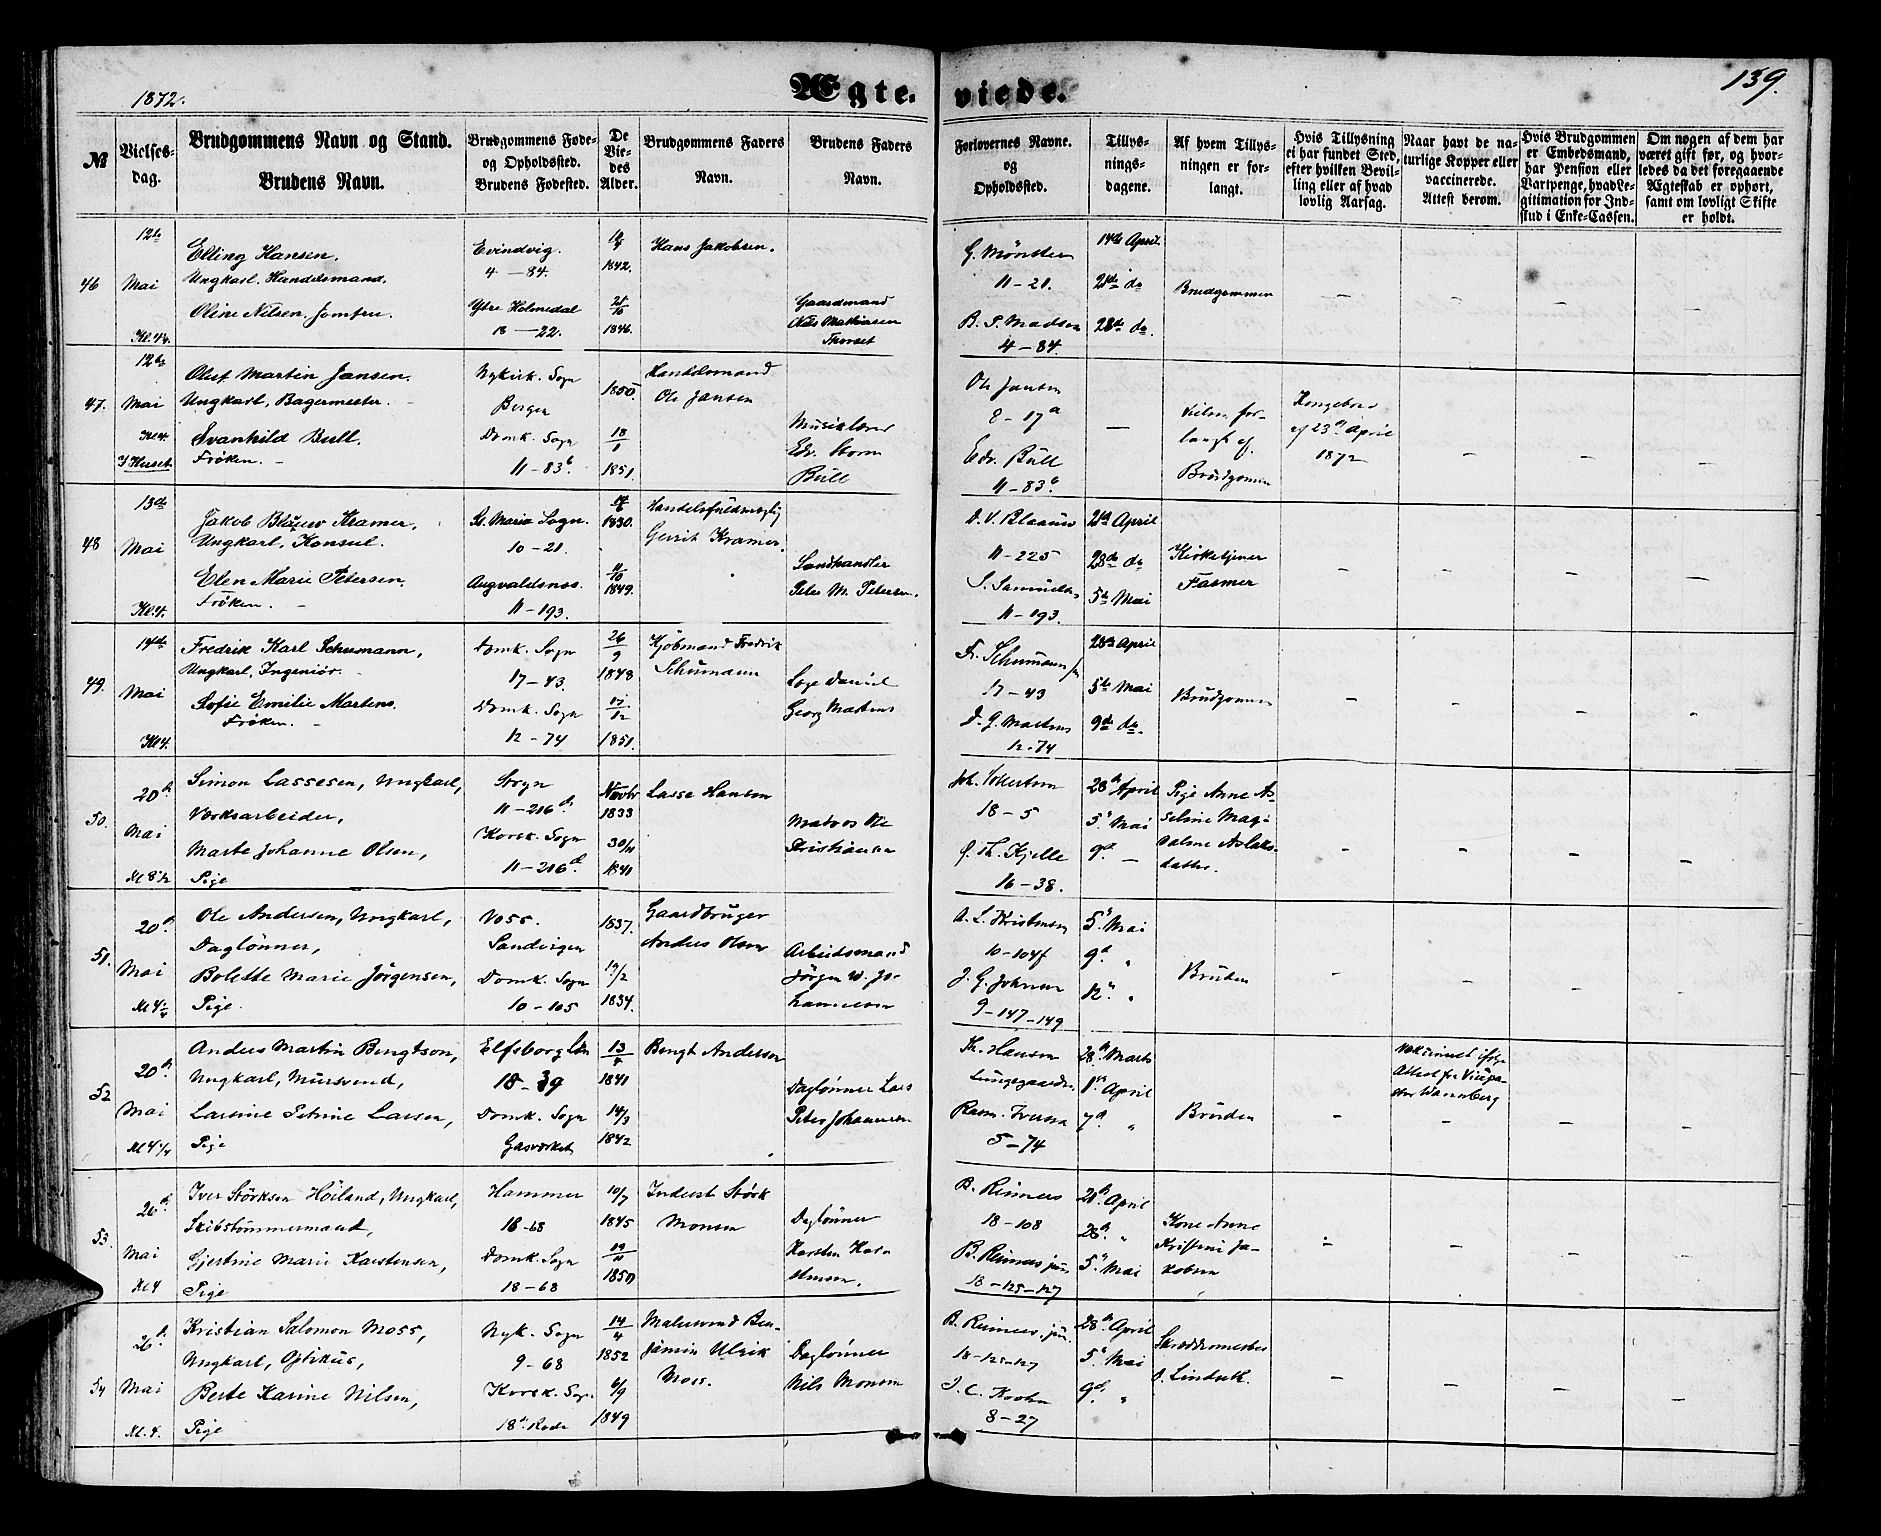 1872.
Ægte-
viede.
139.
№
Vielses-
dag.
Brudgommens Navn og Stand.
Brudens Navn.
Brudgommens Føde-
og Opholdssted.
Brudens Fødested.
De
Vie-
des
Alder.
Brudgommens Faders
Navn.
Brudens Faders
Navn.
Forlovernes Navne.
og
Opholdssted.
Tillys-
nings-
dagene.
Af hvem Tillys-
ningen er for-
langt.
Hvis Tillysning
ei har fundet Sted,
efter hvilken Bevil-
ling eller af hvad
lovlig Aarsag.
Naar havt de na-
turlige Kopper eller
vaccinerede.
Attest derom.
Hvis Brudgommen
er Embedsmand,
har Pension eller
Vartpenge, hvad Le-
gitimation for Ind-
skud i Enke-Cassen.
Om nogen af dem har
været gift før, og hvor-
ledes da det foregaaende
Ægteskab er ophørt,
samt om lovligt Skifte
er holdt.
46
12te
Mai
Kl. 4½
Elling Hansen,
Ungkarl, Handelsmand.
Oline Nilsen, Jomfru.
Evindvig.
4 – 84.
Ytre Holmedal
18 – 22.
1842.
21/10
1846.
Hans Jakobsen.
Gaardmand
Nils Mathiasen
Thorset
G. Mönster
11 – 21.
B. S. Madsen
4 – 84.
14de April
21de do
28de do.
Brudgommen
– – – –
47.
12te
Mai
Kl 4.
I Huset
Oluf Martin Jansen.
Ungkarl, Bagermester. –
Svanhild Bull.
Frøken. –
Nykirk. Sogn
Bergen
Domk. Sogn
11 – 83 b.
1850.
18/1
1851.
Handelsmand
Ole Jansen
Musiklærer
Edv. Storm
Bull
Ole Jansen
8 – 17 a
Edv. Bull
11 – 83 b.
–
Vielsen for-
langt af
Brudgommen
Kongebrev
af 23de April
1872
– – –
48
13de
Mai
Kl. 4.
Jakob Blaauw Kramer,
Ungkarl, Konsul.
Elen Marie Petersen,
Frøken. –
St. Maria Sogn.
10 – 21.
Augvaldsnæs.
11 – 193.
1830.
11/10
1849.
Handelsfuldmægtig
Gerrit Kramer.
Landhandler
Peter M. Petersen.
D. V. Blaauw
11 – 225
S. Samuelsen
11 – 193
21de April
28de do
5te Mai
Kirketjener
Fasmer
– – – –
49.
14de
Mai
Kl 4.
Fredrik Karl Schumann,
Ungkarl, Ingeniør. –
Sofie Emilie Martens.
Frøken. –
Domk. Sogn
17 – 43.
Domk. Sogn
12 – 74
26/9
1848
17/12
1851.
Kjøbmand Fredrik
Schumann
Daniel
Georg Martens
Fr. Schumann
17 – 43
D. G. Martens
12 – 74
28de April
5te Mai
9de do.
Brudgommen
– – – –
50.
20d.
Mai
Kl 8½
Simon Lassesen, Ungkarl,
Værksarbeider,
Marte Johanne Olsen,
Pige
Sogn
11 – 216 d.
Korsk. Sogn
11 – 216 d.
Novbr
1833
30/11
1841
Lasse Hansen
Matros Ole
Kristiansen
18 – 5
O. Th. Kjelle
16 – 38.
28d April
5. Mai
9d –
Pige Anne As-
seline Mag-
dalene Aslaks-
datter.
– – – –
51.
20d.
Mai
Kl 4¼
Ole Andersen, Ungkarl,
Dagløner,
Bolette Marie Jörgensen,
Pige.
Voss.
Sandvigen
Domk. Sogn
10 – 105
1837.
19/2
1834.
Gaardbruger
Anders Olsen
Arbeidsmand
Jörgen W. Jo-
hannesen
A. L. Kristensen
10 – 104f
J. G. Johnsen
9 – 147 – 149
5. Mai
9d. "
12. "
Bruden
– – – –
52
20d.
Mai
Kl 4¼
Anders Martin Bengtson,
Ungkarl, Mursvend,
Larsine Petrine Larsen,
Pige
Elfsborg Län
18 – 39
Domk. Sogn
Gasværket
13/4
1841
14/3
1842
Bengt Andersen
Dagløner Lars
Peter Johannesen
Th. Hansen
Lungegaarden
Rasm. Iversen
5 – 74
28d Marts
1ste April
7d. "
Bruden
–
Vakcineret ifølge
Attest fra Vicepa-
stor Wannberg
– –
53.
26d.
Mai
Kl 4
Iver Störksen Höiland, Ungkarl,
Skibstømmermand,
Gjertine Marie Karstensen,
Pige
Hammer
18 – 68
Domk. Sogn
18 – 68
10/7
1845
19/11
1850
Inderst Störk
Monsen
Dagløner
Karsten Kar-
stensen.
B. Reimers
18 – 108
B. Reimers jun.
18 – 125 – 127
21d. April
28d. "
5. Mai
Kone Anne
Kristine Ja-
kobsen
– – – –
54
26d.
Mai
Kl. 4.
Kristian Salomon Moss,
Ungkarl, Optikus,
Berte Karine Nilsen,
Pige
Nyk. Sogn
9 – 68
Korsk. Sogn
18d. Rode
14/4
1852
6/9
1849
Malersvend Ben-
jamin Ulrik
Moss.
Dagløner
Nils Monsen
B. Reimers jun.
18 – 125 – 127
J. C. Koren
8 – 27
28d. April
5. Mai
9d. "
Skræddermester
O. Lindvik
– – – –